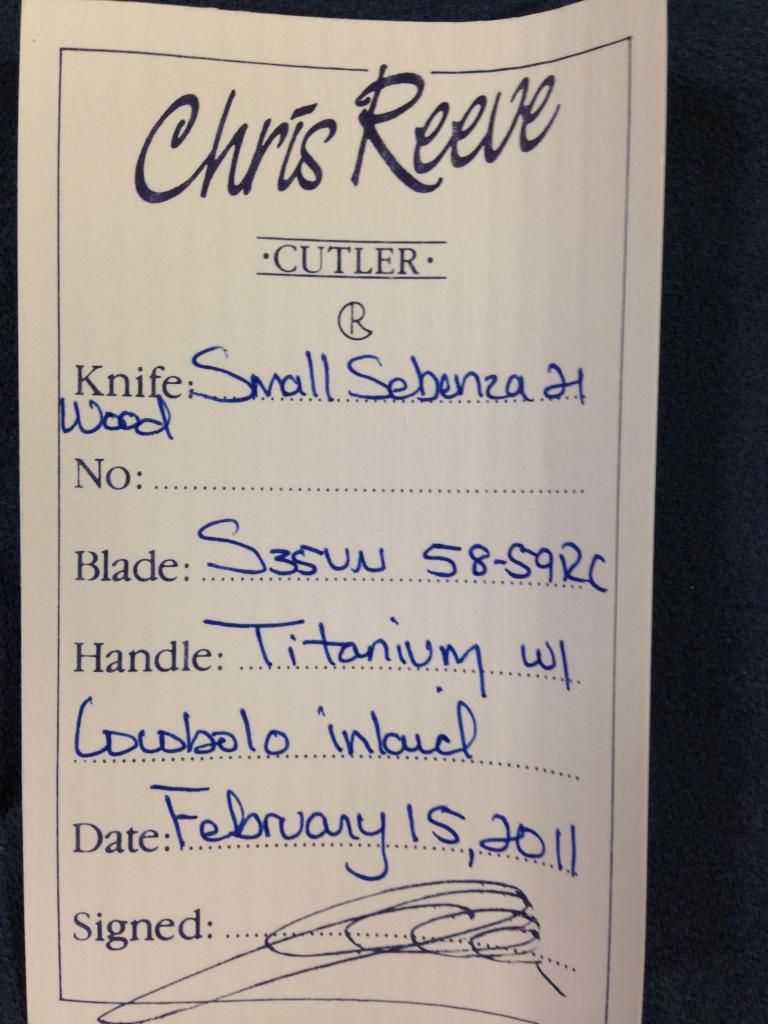 Chris Reeve
·CUTLER·
R
Knife: Small Sebenza 21
Wood
No:
Blade: S35VN 58-59RC
Handle: Titanium w/
Cocobolo inlaid
Date: February 15, 2011
Signed: